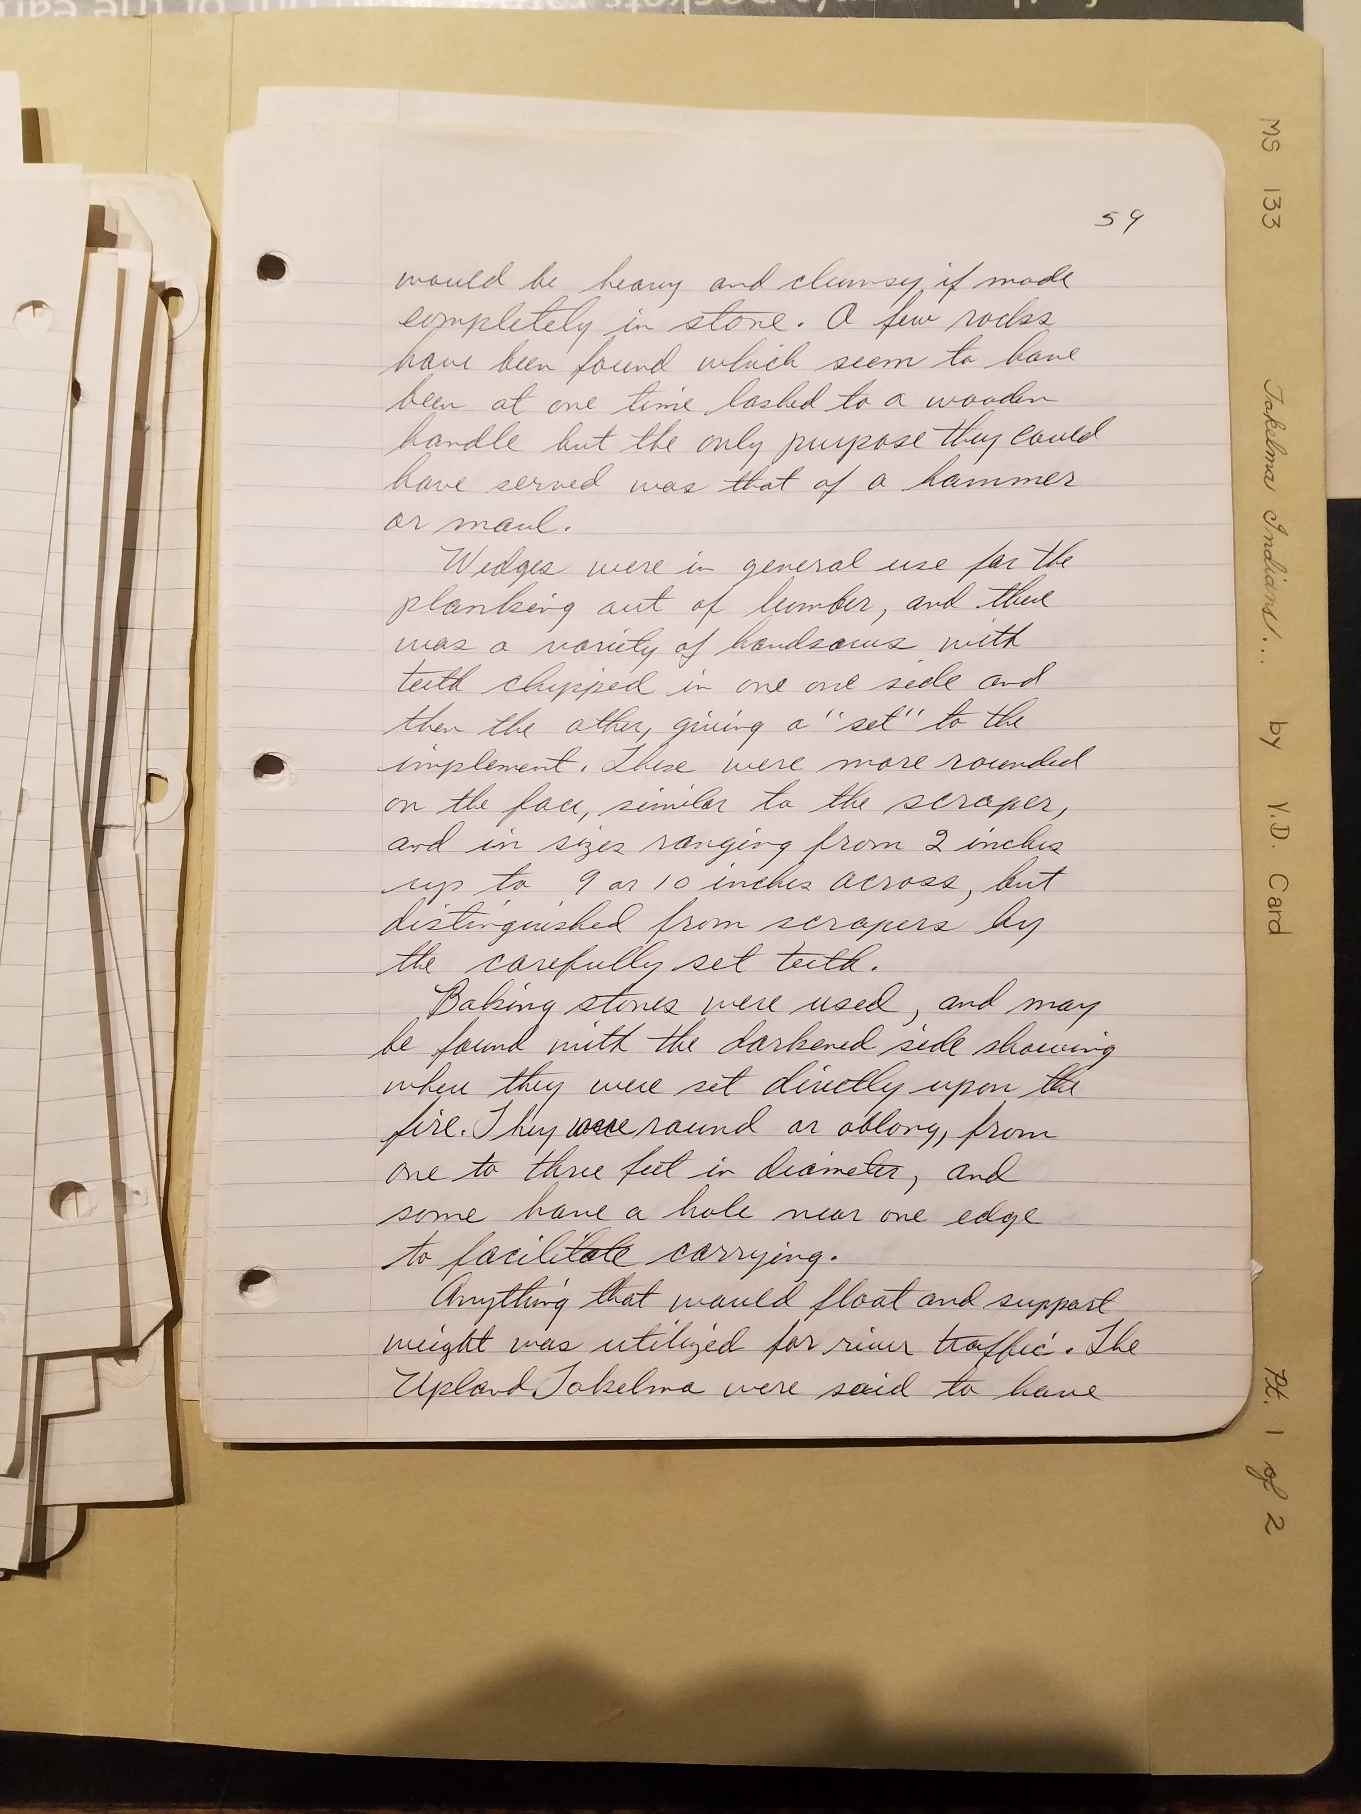 59
would be heavy and clumsy if made
completely in stone. A few rocks
have been found which seem to have
been at one time lashed to a wooden
handle but the only purpose they could
have served was that of a hammer
or maul.
Wedges were in general use for the
planking out of lumber, and there
was a variety of handsaws with
teeth chipped in one one side and
then the other, giving a "set" to the
implement. These were more rounded
on the face, similar to the scraper,
and in sizes ranging from 2 inches
up to 9 or 10 inches across, but
distinguished from scrapers by
the carefully set teeth.
Baking stones were used, and may
be found with the darkened side showing
where they were set directly upon the
fire. They were round or oblong, from
one to three feet in diameter, and
some have a hole near one edge
to facilitate carrying.
Anything that would float and support
weight was utilized for river traffic. The
Upland Takelma were said to have
MS 133 Takelma Indians... by V.D. Card Pt. 1 of 2